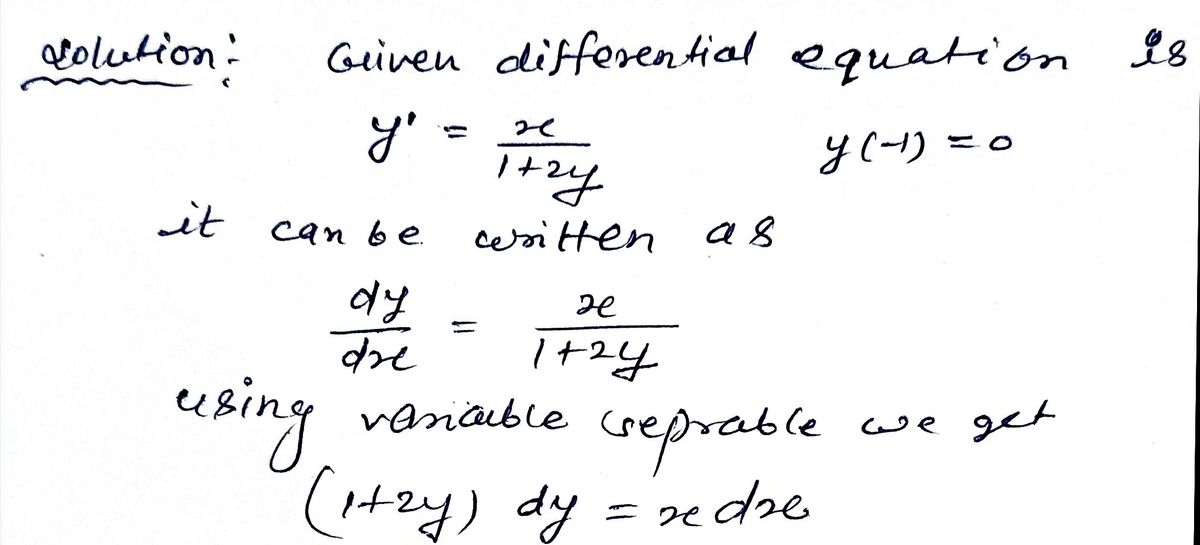 Solution:- Given differential equation is
y' = x/(1+2y) y(-1) = 0
it can be written as
dy/dx = x/(1+2y)
using variable seprable we get
(1+2y) dy = x dx